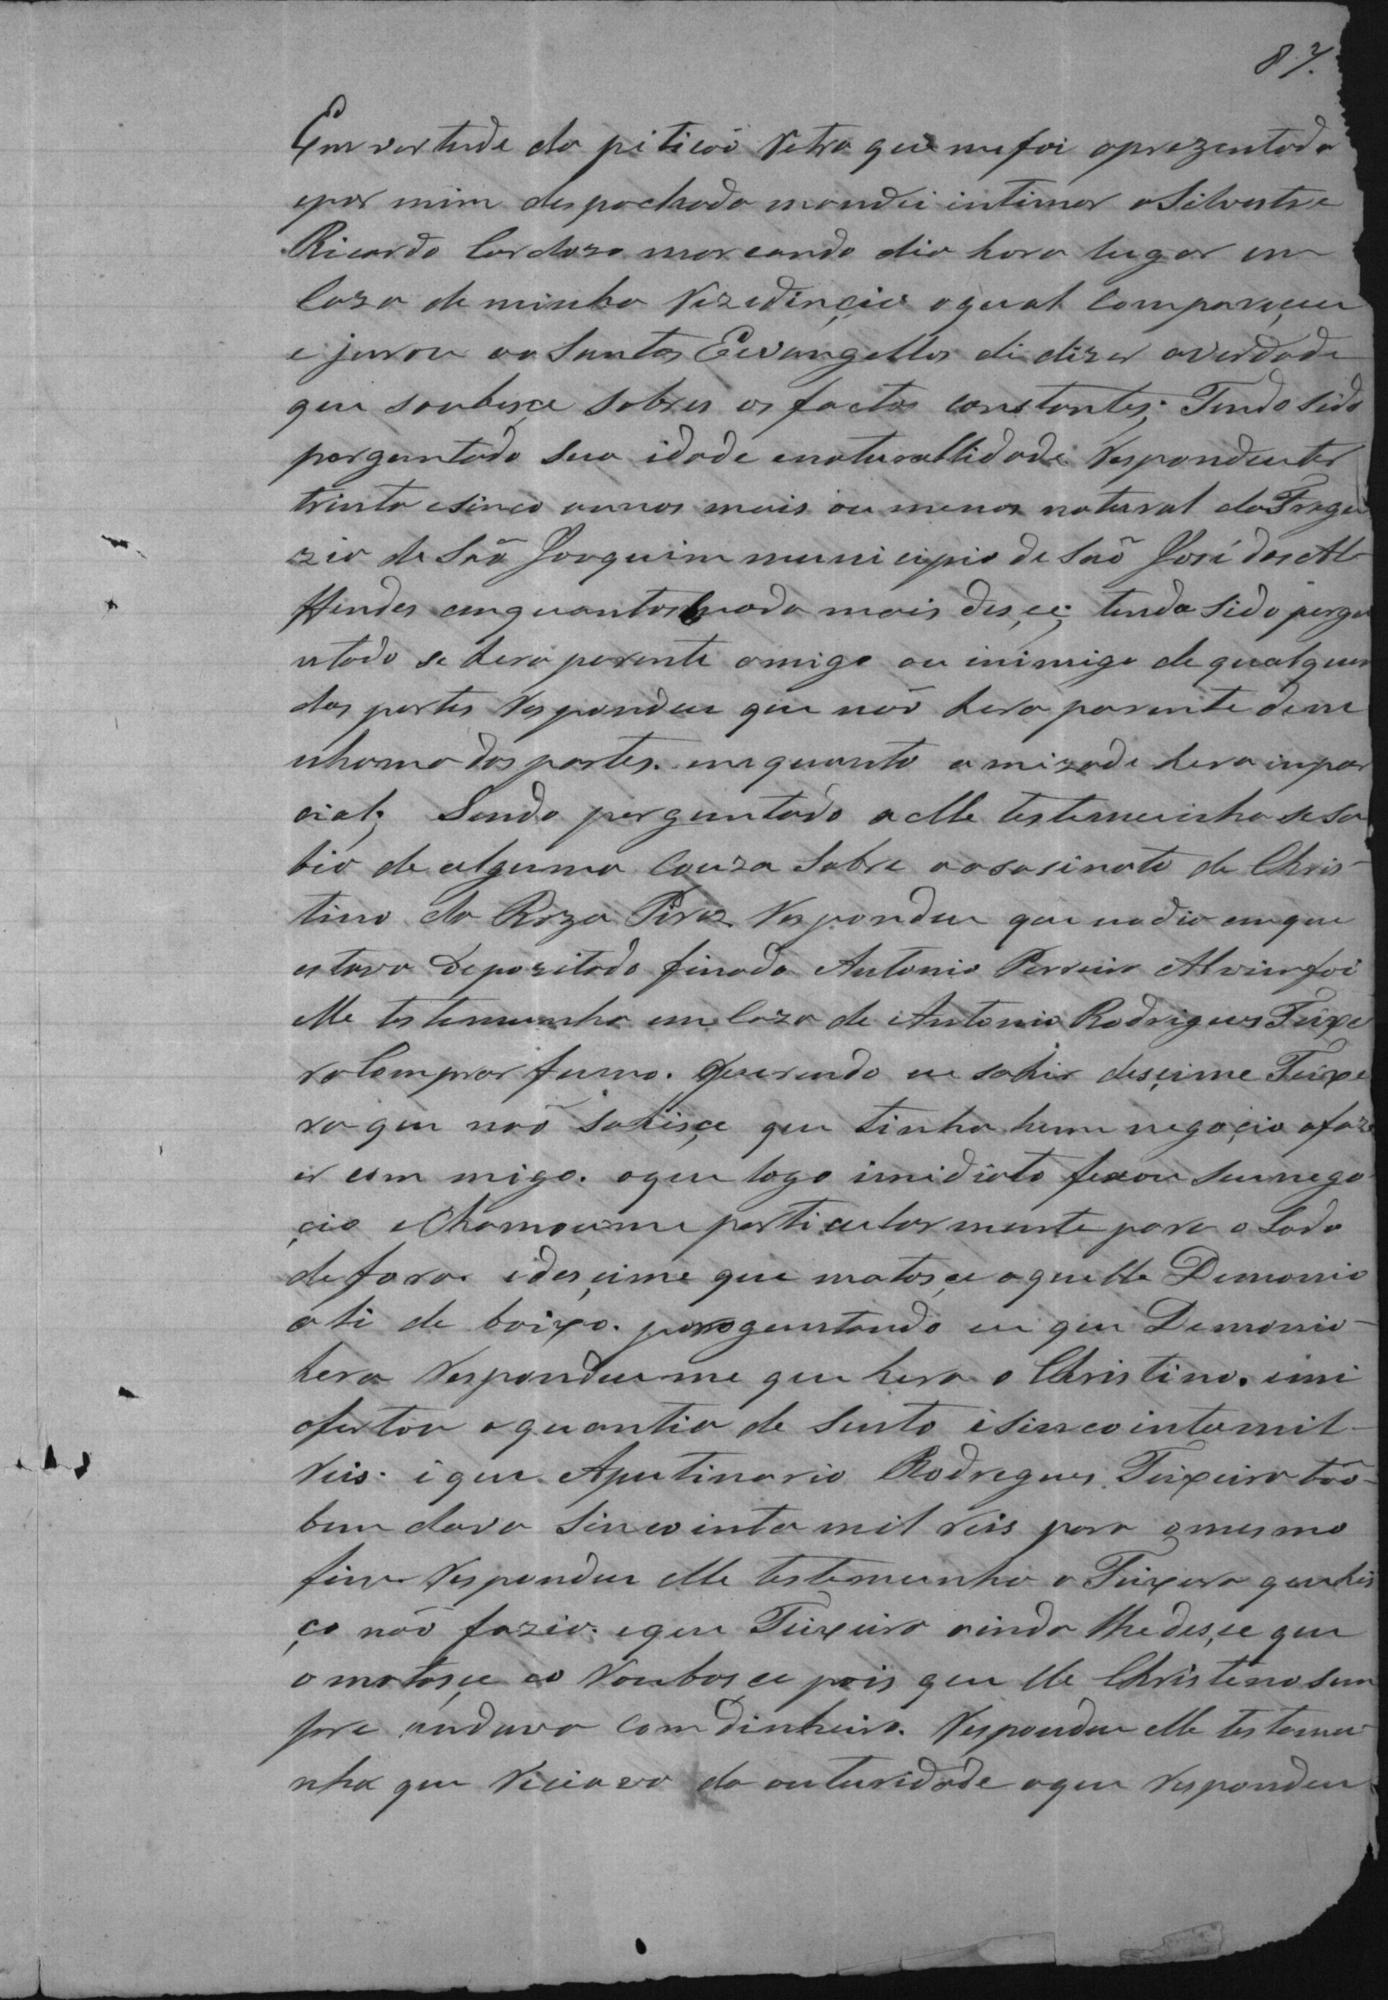 87.
Em vertude da petiçaõ retro que me foi aprezentada
epor mim despachada mandei intimar a Silvestre
Ricardo Cardozo marcando dia hora lugar em
Caza de minha rezidinçia o qual compareçeu
e jurou aos Santos Eevangellos di dizer averdade
que soubesçe sobreu os factos constantes; Tendo sido
perguntado sua idade enaturallidade respondeu ter
trinta esinco annos mais ou menos natural da Fregu
zia de Saõ Joaquim municipio de Saõ José dos Al-
ffenas emquantos nada mais desçe; tenda sido pergu
ntado se hera parente amigo ou inimigo de qualquer
das partes respondeu que naõ hera parente dene
nhuma das partes. emquanto amizade hera inpar
cial; Sendo perguntado a elle testemuinha se sa
bia de alguma Couza sobre o asasinato de Chris-
tino da Roza Pires respondeu que nodia emque
estava Depozitado finado Antonio Perreira Alvim foi
elle testemunha em Caza de Antonio Rodrigues Teixe
ra Comprar fumo. Querendo eu sahir desçime Teixe
ra que naõ sahisçe que tinha hum negoçio afaz
er com migo. oque logo imidiato fexou seu nego
çio eChamoume particularmente para o Lado
de fora. edesçime que matasçe aquelle Demonio
ali de baixo. perguntando eu que Demonio-
hera respondeume que hera o Christino. imi
ofertou aquantia de Sento isincointa mil-
reis. i que Aputinario Rodregues Teixeira tão-
bem dava Sincointa mil reis para o mesmo
fim. respondeu elle testemunha a Teixera que his
ço naõ fazia. eque Teixeira ainda lhe desçe que
o matasçe eo roubasçe pois que lle Christino sem
pre andava com dinheiro. respondeu elle testemu
nha que reciava da auturidade oque respondeu